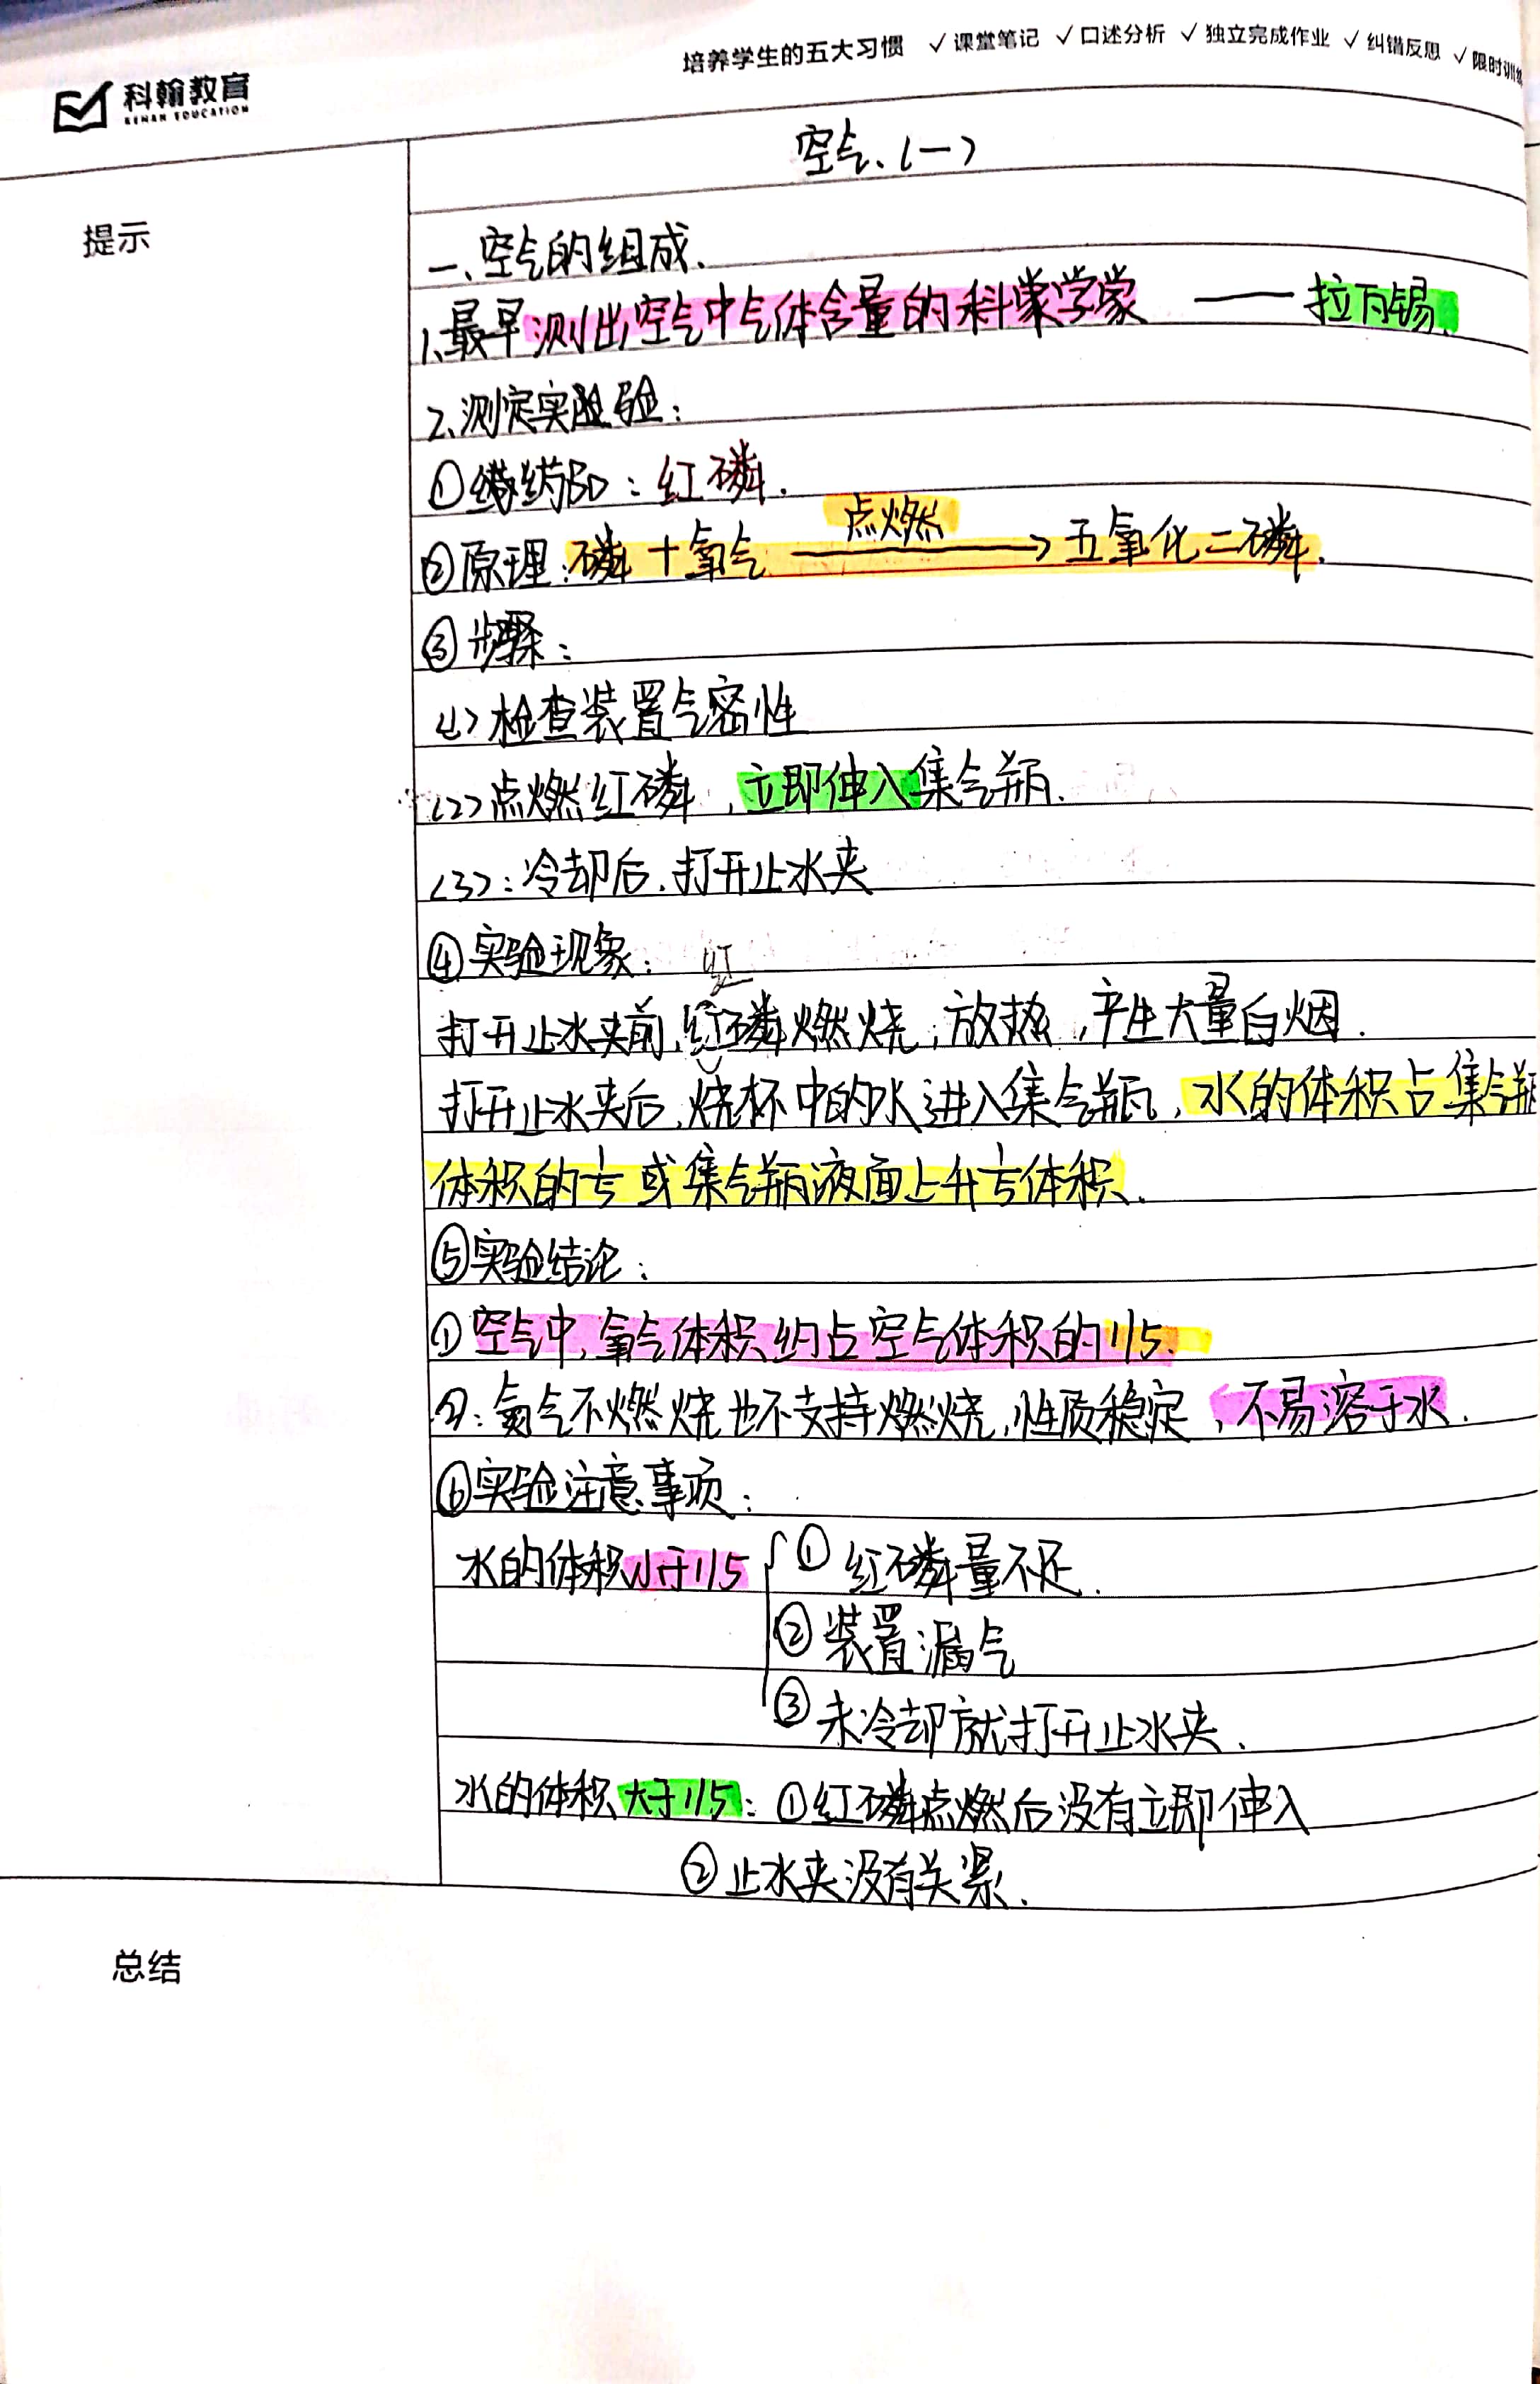 培养学生的五大习惯 √课堂笔记 √口述分析 √独立完成作业 √纠错反思 √限时训练
科翰教育
KEHAN EDUCATION
空气、(一)
提示
一、空气的组成、
1、最早测出空气中气体含量的科学家 —— 拉瓦锡、
2、测定实验：
①药品：红磷.
②原理：磷+氧气 —点燃→ 五氧化二磷.
③步骤：
(1)检查装置气密性
(2)点燃红磷，立即伸入集气瓶.
(3)：冷却后，打开止水夹
④实验现象：
红
打开止水夹前，红磷燃烧，放热，产生大量白烟.
打开止水夹后，烧杯中的水进入集气瓶，水的体积占集气瓶
体积的1/5或集气瓶液面上升1/5体积.
⑤实验结论：
①空气中，氧气体积约占空气体积的1/5.
②：氮气不燃烧也不支持燃烧，性质稳定，不易溶于水.
⑥实验注意事项：
水的体积小于1/5 ①红磷量不足.
②装置漏气
③未冷却就打开止水夹.
水的体积大于1/5：①红磷点燃后没有立即伸入
②止水夹没有关紧.
总结